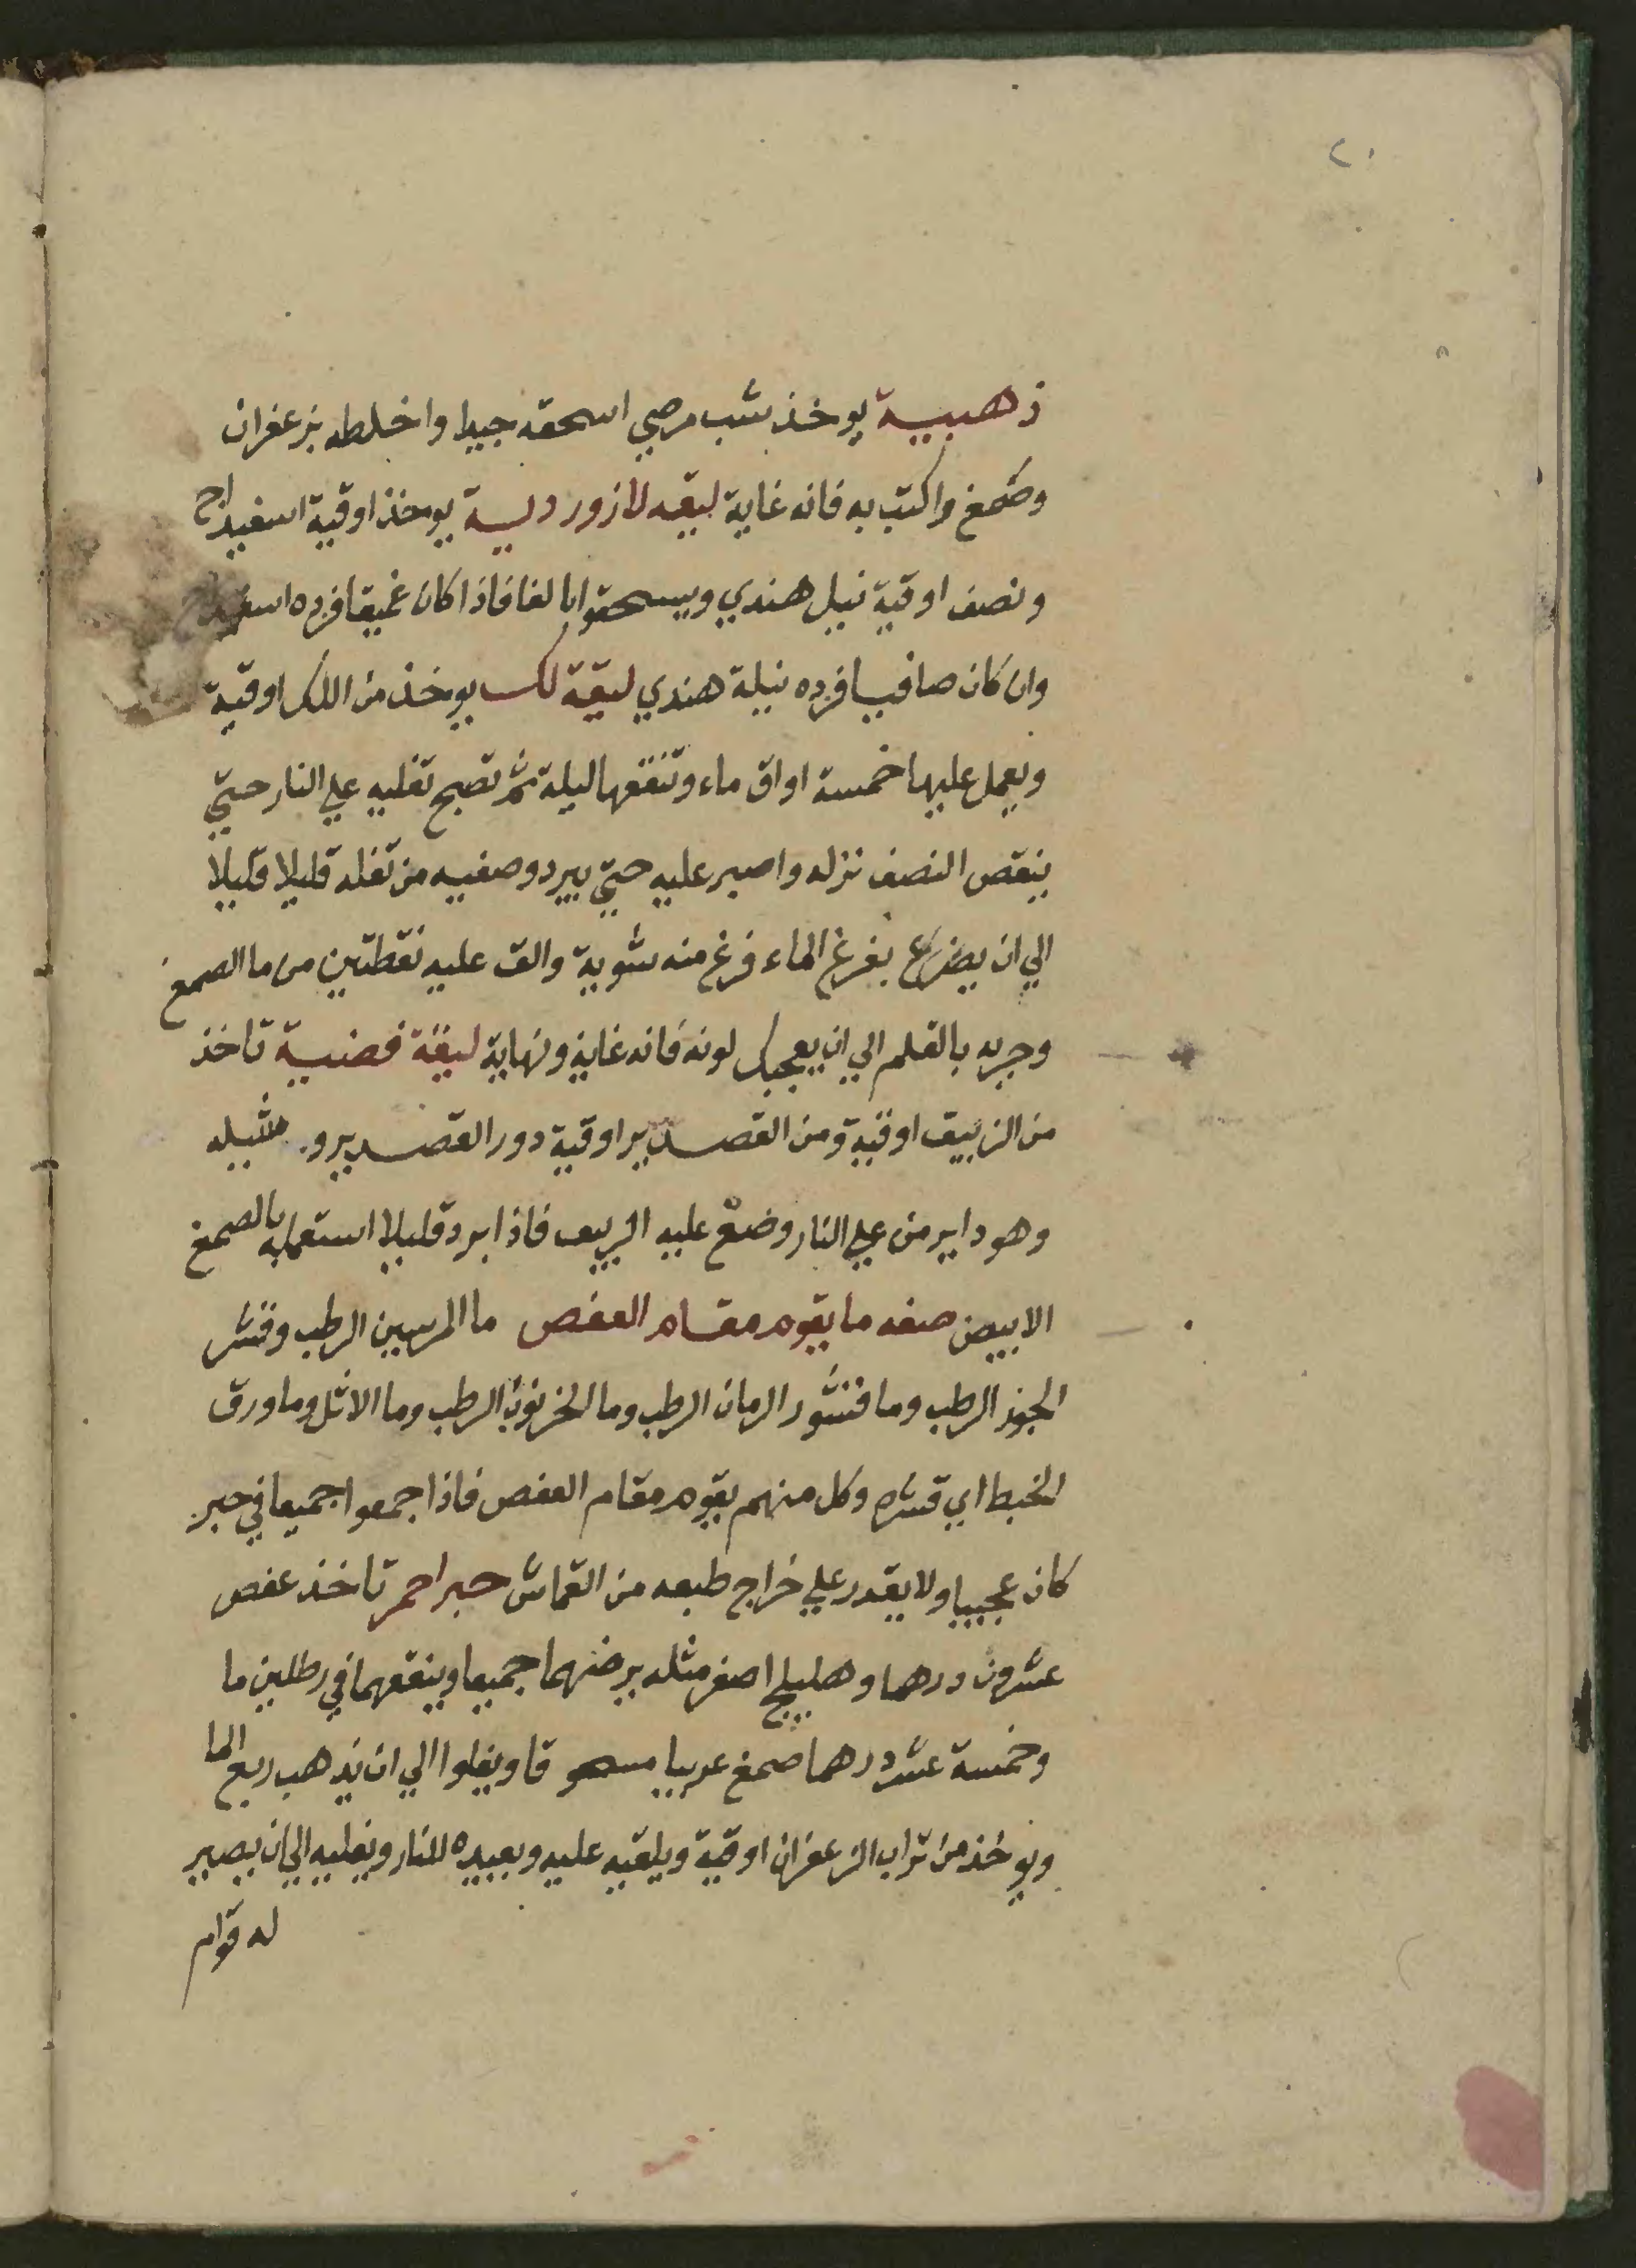 ٢٠
ذهبية يوخذ شب مرصي اسحقه جيدا واخلطه بزعفران
وصمغ واكتب به فانه غاية ليقه لازوردية يوخذ اوقية اسفيداج
ونصف اوقية نيل هندي ويسحقوا بالغا فاذا كان غميقا فزده
وان كان صافيا فزده نيلة هندي ليقة لك يوخذ من اللك اوقية
ويعمل عليها خمسة اواق ماء وتنقعها ليلة ثم تصبح تغليه علي النار حتي
ينقص النصف نزله واصبر عليه حتي يبرد وصفيه من تفله قليلا قليلا
الي ان يفرغ الماء فرغ منه شوية والق عليه نقطتين من ما الصمغ
وجربه بالقلم الي ان يعجبك لونه فانه غاية ونهاية ليقة فضية تاخذ
من الزيبق اوقية ومن القصدير اوقية دور القصدير و تشيله
وهو داير من علي النار وضع عليه الزيبق فاذا برد قليلا استعمله بالصمغ
الابيض صفه ما يقوم مقام العفص ما المرسين الرطب وقشر
الجوز الرطب وما قشور الرمان الرطب وما الخرنوب الرطب وما الاثل وما ورق
الخبط اي قشره وكل منهم يقوم مقام العفص فاذا جمعوا جميعا في حبر
كان عجيبا ولا يقدر علي خراج طبعه من القماش حبر احمر تاخذ عفص
عشرون درهما وهليلج اصفر مثله يرضهما جميعا وينقعهما في رطلين ما
وخمسة عشر درهما صمغ عربيا مسحوقا ويغلوا الي ان يذهب ربع الما
ويوخذ من تراب الزعفران اوقية ويلقيه عليه ويعيده للنار ويغليه الي ان يصير
له قوام